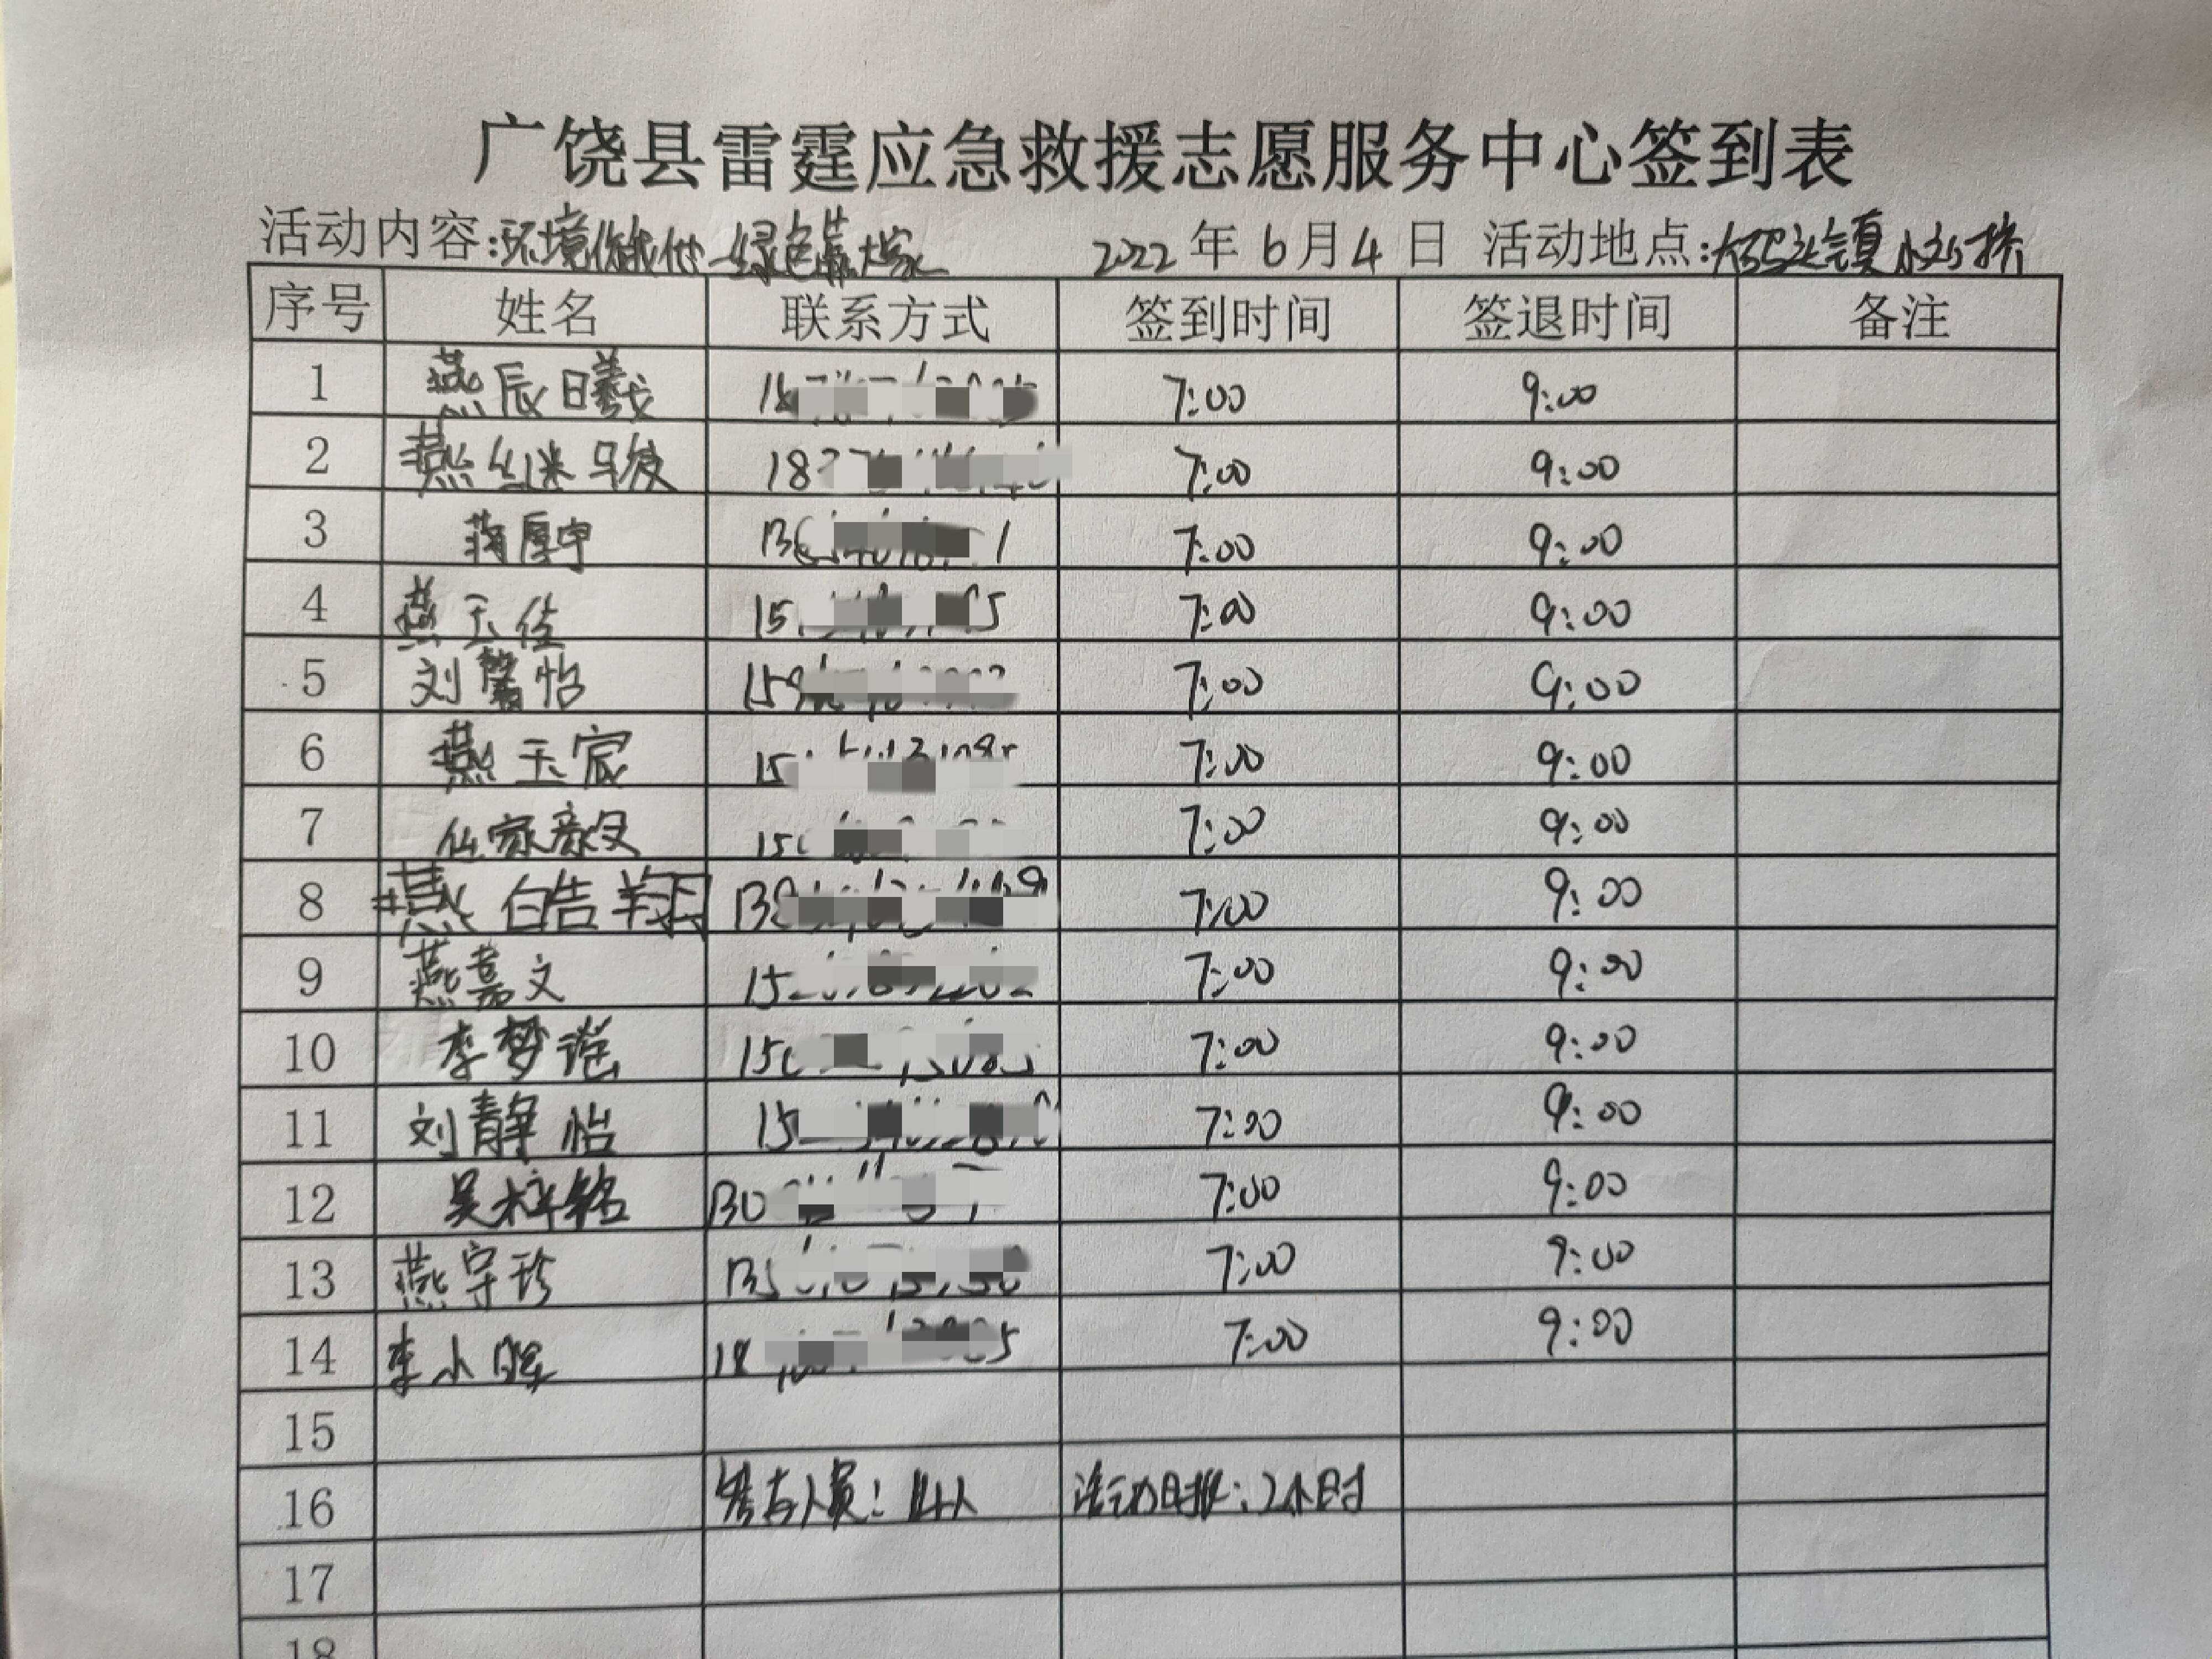 广饶县雷霆应急救援志愿服务中心签到表
活动内容:环境你我他 绿色靠大家 2022年6月4日 活动地点:大码头镇
序号 姓名 联系方式 签到时间 签退时间 备注
1 燕辰曦 7:00 9:00
2 燕继骏 18 7:00 9:00
3 蒋厚宇 7:00 9:00
4 燕玉佳 15 7:00 9:00
5 刘馨怡 159 7:00 9:00
6 燕玉宸 15 7:00 9:00
7 伍家毅 15 7:00 9:00
8 燕皓翔 7:00 9:00
9 燕嘉文 15 7:00 9:00
10 李梦谣 15 7:00 9:00
11 刘静怡 15 7:00 9:00
12 吴梓铭 130 7:00 9:00
13 燕守珍 7:00 9:00
14 李小 7:00 9:00
15
16 参与人员: 14人 活动时长: 2小时
17
18